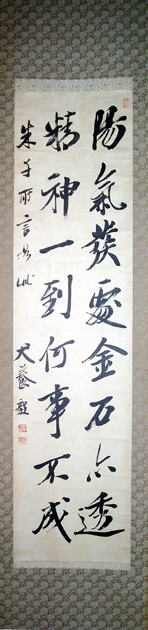 陽氣發處金石亦透
精神一到何事不成
朱子所言如此
犬養毅